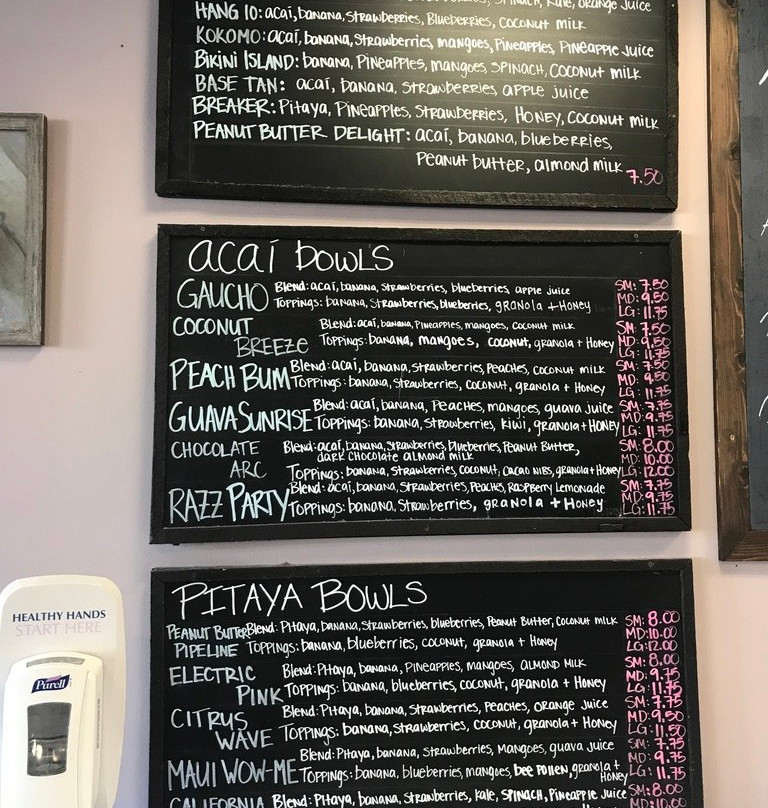 SPINACH, Kale, orange Juice
HANG 10: acaí, banana, Strawberries, Blueberries, Coconut milk
KOKOMO: acaí, banana, Strawberries, mangoes, Pineapples, Pineapple Juice
BIKINI ISLAND: banana, Pineapples, mangoes, SPINACH, Coconut milk
BASE TAN: acaí, banana, Strawberries, apple juice
BREAKER: Pitaya, Pineapples, Strawberries, Honey, Coconut milk
PEANUT BUTTER DELIGHT: acaí, banana, blueberries,
Peanut butter, almond milk
7.50
acaí bowls
GAUCHO Blend: acaí, banana, Strawberries, blueberries, apple juice SM: 7.50
Toppings: banana, Strawberries, blueberries, granola + Honey MD: 9.50
LG: 11.75
COCONUT BREEZE Blend: acaí, banana, Pineapples, mangoes, coconut milk SM: 7.50
Toppings: banana, mangoes, coconut, granola + Honey MD: 9.50
LG: 11.75
PEACH BUM Blend: acaí, banana, Strawberries, Peaches, coconut milk SM: 7.50
Toppings: banana, Strawberries, coconut, granola + Honey MD: 9.50
LG: 11.75
GUAVA SUNRISE Blend: acaí, banana, Peaches, mangoes, guava juice SM: 7.75
Toppings: banana, Strawberries, kiwi, granola + Honey MD: 9.75
LG: 11.75
CHOCOLATE ARC Blend: acaí, banana, Strawberries, blueberries, Peanut Butter, SM: 8.00
dark chocolate almond milk MD: 10.00
Toppings: banana, Strawberries, coconut, cacao nibs, granola + Honey LG: 12.00
RAZZ PARTY Blend: acaí, banana, Strawberries, Peaches, Raspberry Lemonade SM: 7.75
Toppings: banana, Strawberries, granola + Honey MD: 9.75
LG: 11.75
PITAYA BOWLS
PEANUT BUTTER PIPELINE Blend: Pitaya, banana, Strawberries, blueberries, Peanut Butter, Coconut milk SM: 8.00
Toppings: banana, blueberries, coconut, granola + Honey MD: 10.00
LG: 12.00
ELECTRIC PINK Blend: Pitaya, banana, Pineapples, mangoes, almond milk SM: 8.00
Toppings: banana, blueberries, coconut, granola + Honey MD: 9.75
LG: 11.75
CITRUS WAVE Blend: Pitaya, banana, Strawberries, Peaches, orange Juice SM: 7.75
Toppings: banana, Strawberries, coconut, granola + Honey MD: 9.50
LG: 11.50
MAUI WOW-ME Blend: Pitaya, banana, Strawberries, Mangoes, guava juice SM: 7.75
Toppings: banana, blueberries, mangoes, bee pollen, granola + Honey MD: 9.75
LG: 11.75
CALIFORNIA Blend: Pitaya, banana, Strawberries, kale, SPINACH, Pineapple Juice SM: 8.00
MD: 10.00
HEALTHY HANDS
START HERE
Purell